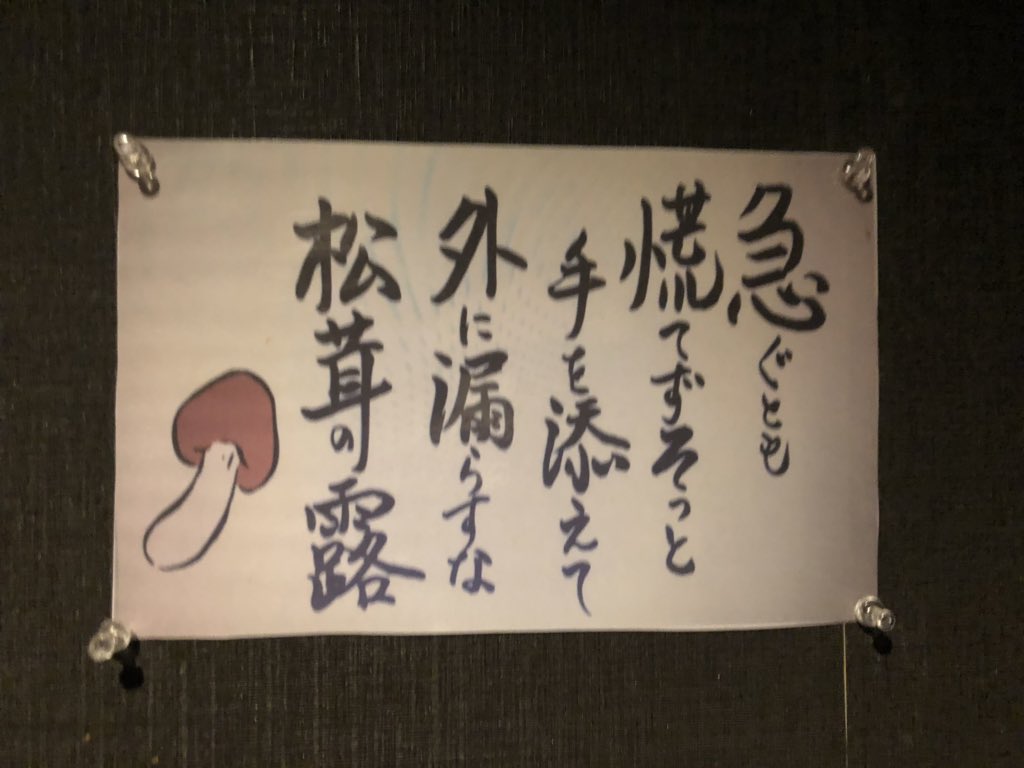 急ぐとも
慌てずそっと
手を添えて
外に漏らすな
松茸の露